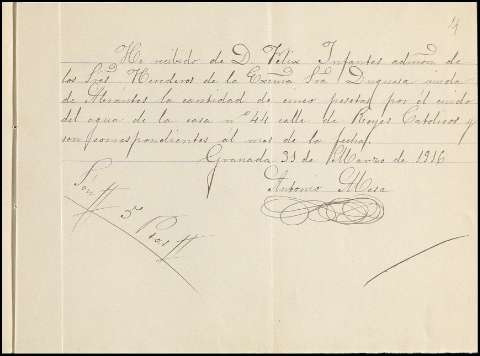 4
He recibido de D. Felix Infantas admor de
los Sres Herederos de la Excma Sra Duquesa viuda
de Abrantes la cantidad de cinco pesetas por el cuido
del agua de la casa nº 44 calle de Reyes Catolicos y
son correspondientes al mes de la fecha.
Granada 31 de Marzo de 1916
Antonio Mesa
Son # 5 Ptas #